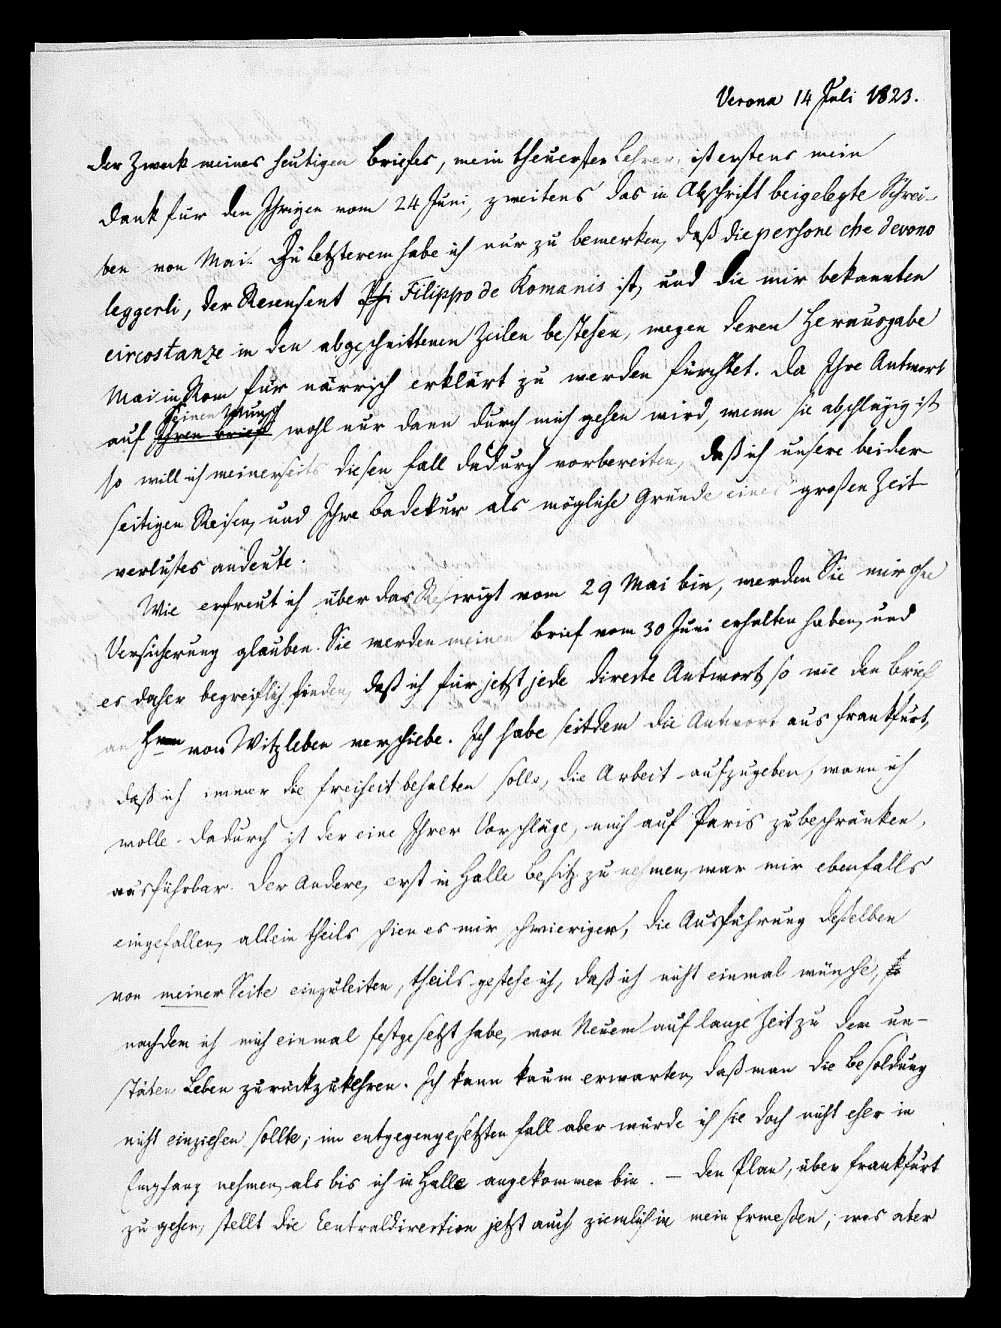 Verona 14 Juli 1823.
Der Zweck meines heutigen Briefes, mein theuerster Lehrer, ist erstens mein
Dank für den Ihrigen vom 24 Juni, zweitens das in Abschrift beigelegte Schrei-
ben von Mai. Zu Letzterem habe ich nur zu bemerken, daß die persone che devono
leggerli, der Recensent Filippo de Romanis ist, und die mir bekannten
circostanze in den abgeschnittenen Zeilen bestehen, wegen deren Herausgabe
Mai in Rom für närrisch erklärt zu werden fürchtet. Da Ihre Antwort
auf seinen Wunsch Ihren Brief wohl nur dann durch mich gehen wird, wenn sie abschlägig ist
so will ich meinerseits diesen Fall dadurch vorbereiten, daß ich unsere beider-
seitigen Reisen, und Ihre Badekur als mögliche Gründe eines großen Zeit-
verlustes andeute.
Wie erfreut ich über das vom 29 Mai bin, werden Sie mir ohne
Versicherung glauben. Sie werden meinen Brief vom 30 Juni erhalten haben, und
es daher begreiflich finden, daß ich für jetzt jede directe Antwort, so wie den Brief
an Hrn von Witzleben verschiebe. Ich habe seitdem die Antwort aus Frankfurt,
daß ich immer die Freiheit behalten solle, die Arbeit aufzugeben, wann ich
wolle. Dadurch ist der eine Ihrer Vorschläge, mich auf Paris zu beschränken,
ausführbar. Der Andere, erst in Halle Besitz zu nehmen, war mir ebenfalls
eingefallen, allein theils schien es mir schwieriger, die Ausführung desselben
von meiner Seite einzuleiten, theils gestehe ich, daß ich nicht einmal wünsche,
nachdem ich mich einmal festgesetzt habe, von Neuem auf lange Zeit zu dem un-
stäten Leben zurückzukehren. Ich kann kaum erwarten, daß man die Besoldung
nicht einziehen sollte; im entgegengesetzten Fall aber würde ich sie doch nicht eher in
Empfang nehmen, als bis ich in Halle angekommen bin. — Den Plan, über Frankfurt
zu gehen, stellt die Centraldirection jetzt auch ziemlich in mein Ermeßen; was aber